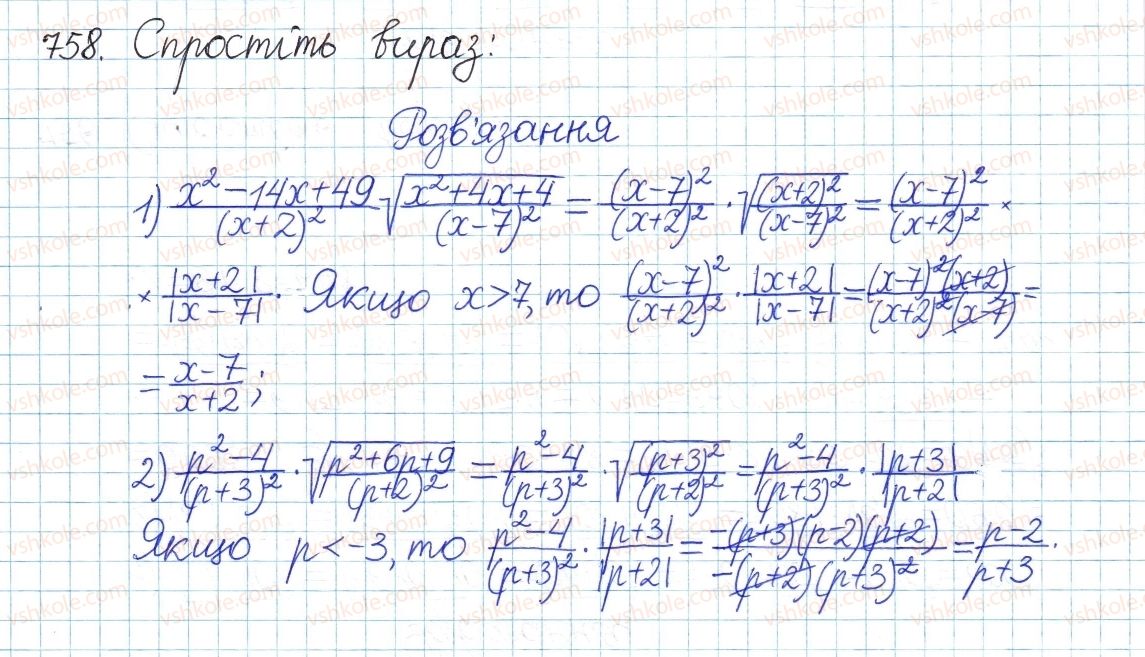 758. Спростіть вираз:
Розв'язання
1) \frac{x^2-14x+49}{(x+2)^2}\sqrt{\frac{x^2+4x+4}{(x-7)^2}} = \frac{(x-7)^2}{(x+2)^2} \cdot \sqrt{\frac{(x+2)^2}{(x-7)^2}} = \frac{(x-7)^2}{(x+2)^2} ×
× \frac{|x+2|}{|x-7|}. Якщо x>7, то \frac{(x-7)^2}{(x+2)^2} \cdot \frac{|x+2|}{|x-7|} = \frac{(x-7)^2(x+2)}{(x+2)^2(x-7)} =
= \frac{x-7}{x+2};
2) \frac{p^2-4}{(p+3)^2} \cdot \sqrt{\frac{p^2+6p+9}{(p+2)^2}} = \frac{p^2-4}{(p+3)^2} \cdot \sqrt{\frac{(p+3)^2}{(p+2)^2}} = \frac{p^2-4}{(p+3)^2} \cdot \frac{|p+3|}{|p+2|}.
Якщо p<-3, то \frac{p^2-4}{(p+3)^2} \cdot \frac{|p+3|}{|p+2|} = \frac{-(p+3)(p-2)(p+2)}{-(p+2)(p+3)^2} = \frac{p-2}{p+3}.
vshkole.com